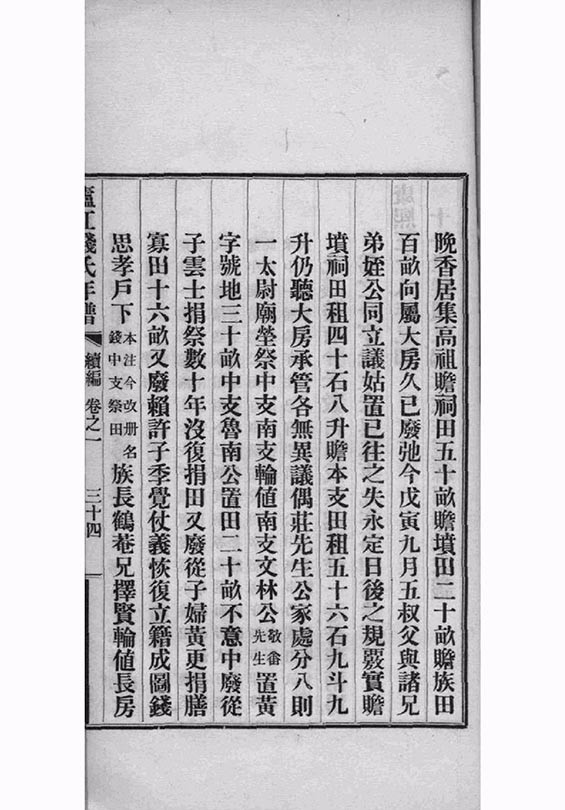 晚香居集高祖贍祠田五十畝贍墳田二十畝贍族田
百畝向屬大房久已廢弛今戊寅九月五叔父與諸兄
弟姪公同立議姑置已往之失永定日後之規覈實贍
墳祠田租四十石八升贍本支田租五十六石九斗九
升仍聽大房承管各無異議偶莊先生公家處分八則
一太尉廟塋祭中支南支輪値南支文林公敬畬先生置黃
字號地三十畝中支魯南公置田二十畝不意中廢從
子雲士捐祭數十年沒復捐田又廢從子婦黃更捐膳
寡田十六畝又廢賴許子季覺仗義恢復立籍成圖錢
思孝戶下本注今改册名錢中支祭田族長鶴菴兄擇賢輪値長房
廬江錢氏年譜 續編 卷之一 三十四